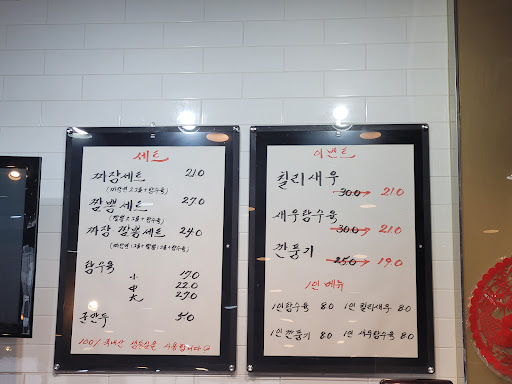 세트
짜장세트 210
(짜장면 2그릇 + 탕수육)
짬뽕세트 270
(짬뽕 2그릇 + 탕수육)
짜장 짬뽕세트 240
(짜장면 1그릇 + 짬뽕 1그릇 + 탕수육)
탕수육
小 170
中 220
大 270
군만두 50
100% 국내산 생돈육을 사용합니다
이벤트
칠리새우
300 → 210
새우탕수육
300 → 210
깐풍기
250 → 190
1인 메뉴
1인 탕수육 80 1인 칠리새우 80
1인 깐풍기 80 1인 새우탕수육 80